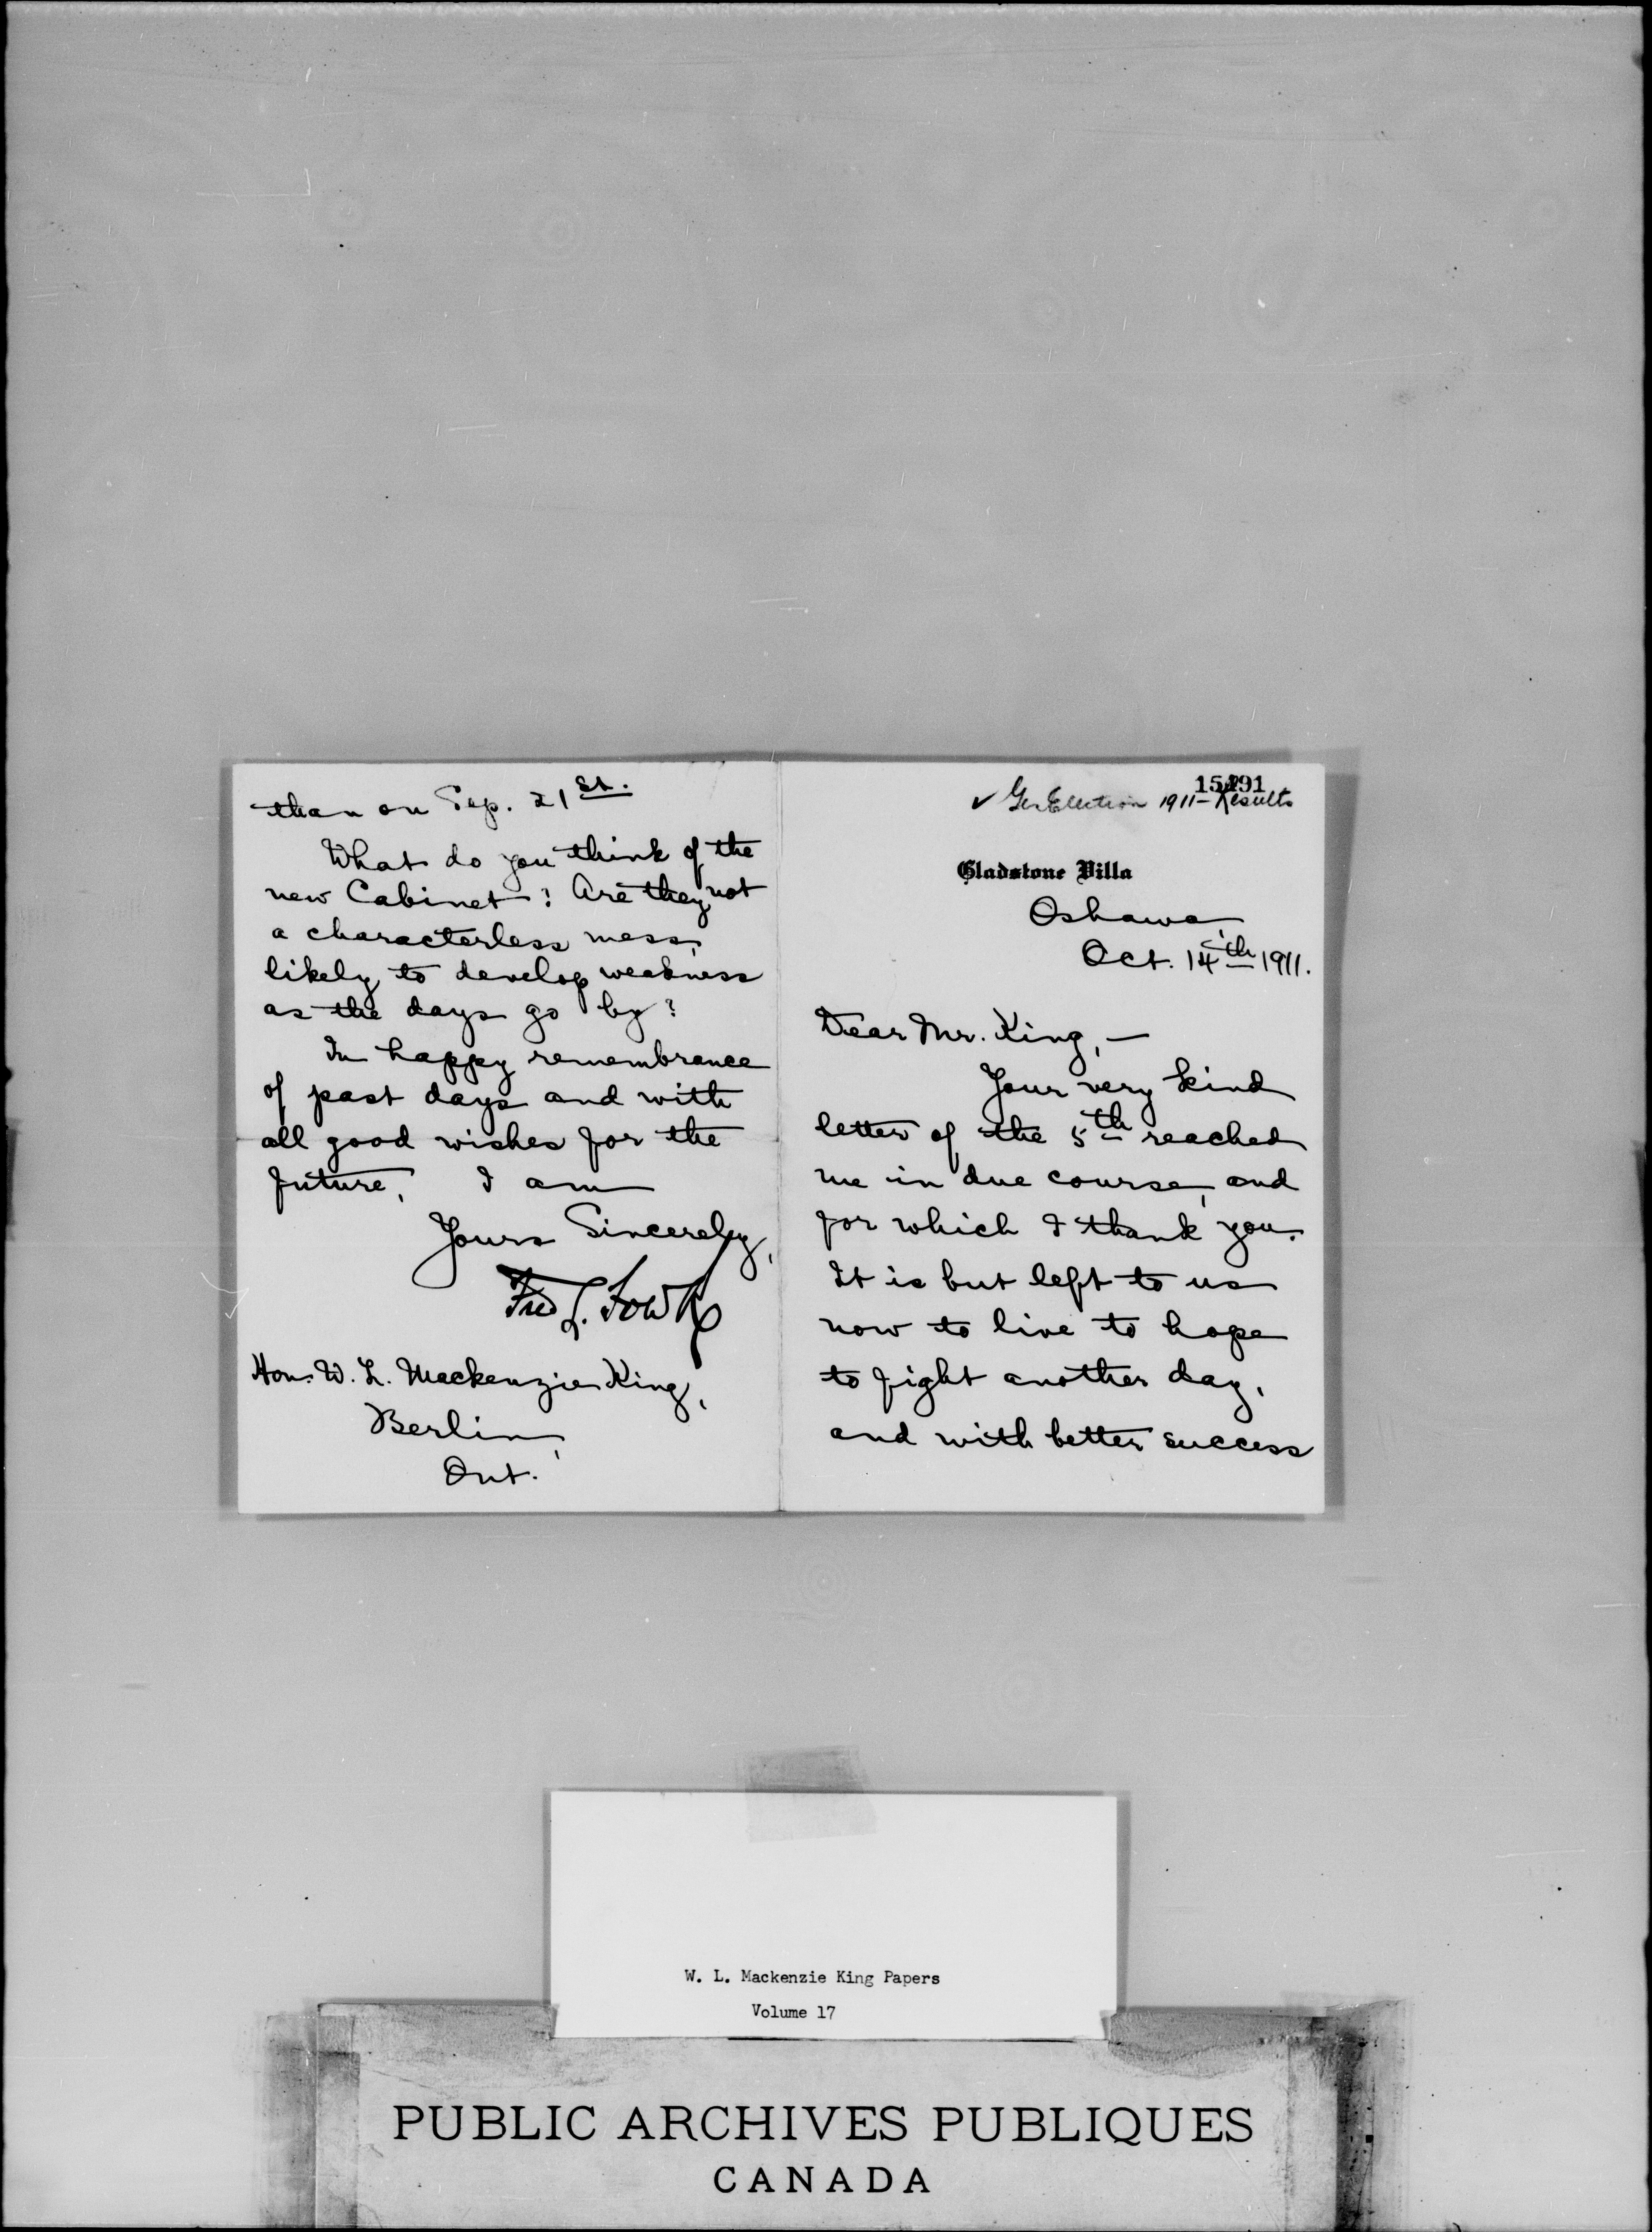 15491
✓ Gen Election 1911 - Results
Gladstone Villa
Oshawa,
Oct. 14th 1911.
Dear Mr. King, —
Your very kind
letter of the 5th reached
me in due course, and
for which I thank you.
It is but left to us
now to live to hope
to fight another day,
and with better success
than on Sep. 21st.
What do you think of the
new Cabinet? Are they not
a characterless mess,
likely to develop weakness
as the days go by?
In happy remembrance
of past days and with
all good wishes for the
future, I am
Yours Sincerely,
Fred L. Fowke
Hon. W. L. Mackenzie King,
Berlin,
Ont.
W. L. Mackenzie King Papers
Volume 17
PUBLIC ARCHIVES PUBLIQUES
CANADA